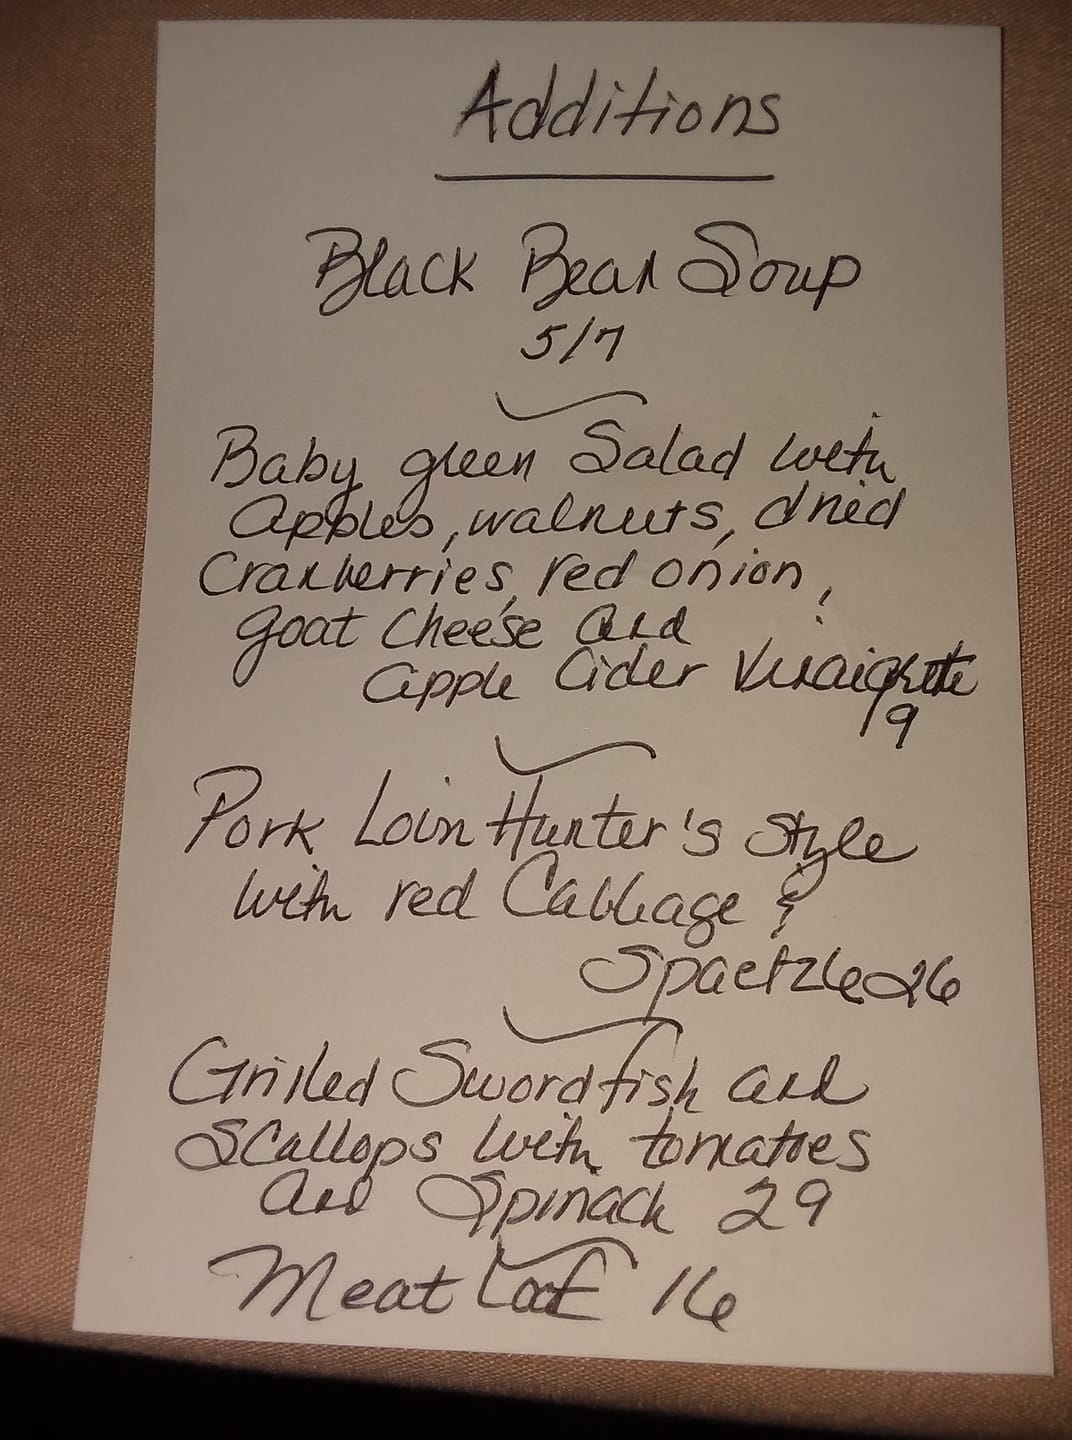 Additions
Black Bean Soup
5/7
Baby green Salad with
Apples, walnuts, dried
Cranberries, red onion,
goat cheese and
apple Cider Vinaigrette
19
Pork Loin Hunter's Style
with red Cabbage &
Spaetzle 26
Grilled Swordfish and
Scallops with tomatoes
and Spinach 29
Meat Loaf 16